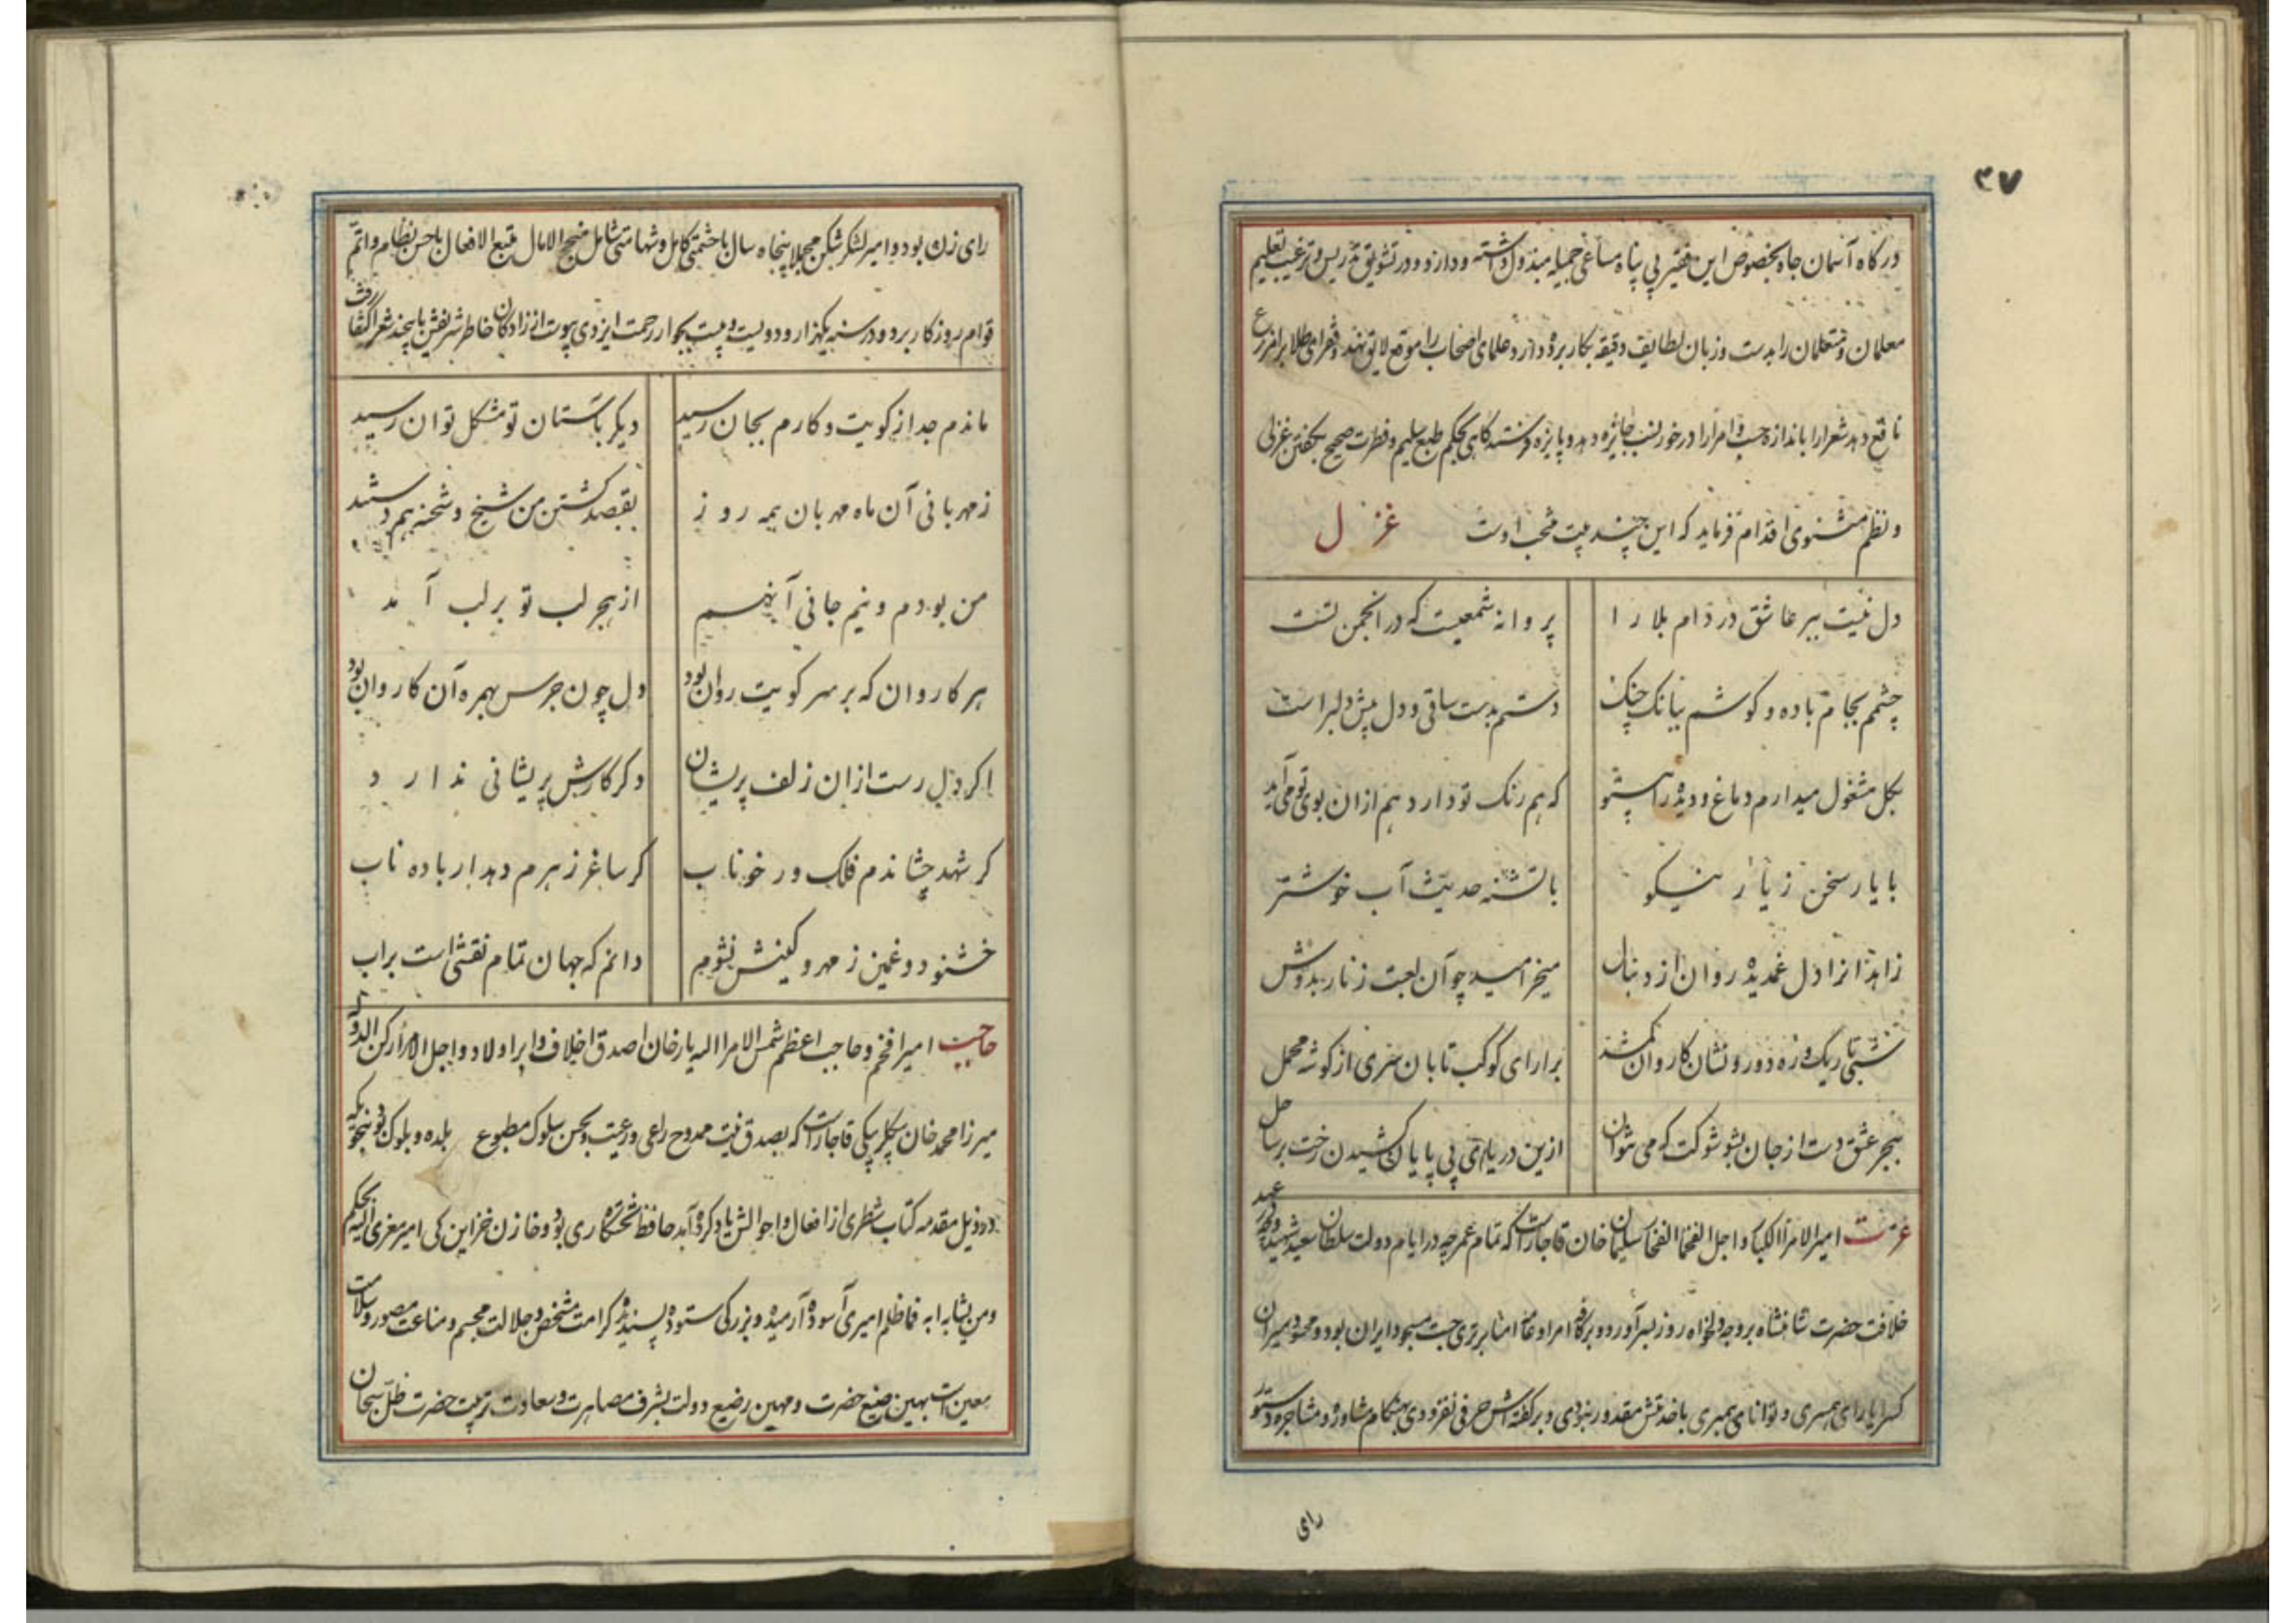 ۴۷
درکاه آسمان جاه بخصوص این فقیر بی پناه مساعی جمیله مبذول داشته و دارد و در تشویق تدریس و ترغیب تعلیم
معلمان و متعلمان را بدست و زبان لطایف دقیقه بکار برده و دارد علمای اصحاب را موقع لایق نهد و فقرای
نافع دهد شعرا را باندازه حسب و امرا را درخور نسب جایزه دهد و پایزه کاهی بحکم طبع سلیم و فطرت صحیح بکفتن غزلی
و نظم مثنوی اقدام فرماید که این چند بیت منتخب اوست غزل
دل نیست ببر عاشق در دام بلا را پروانه شمعیست که در انجمن تست
چشمم بجام باده و کوشم ببانک چنک دستم بدست ساقی و دل پیش دلبر است
بکل مشغول میدارم دماغ و دیده را بیتو که هم رنک تو دارد هم ازان بوی تو می آید
با یار سخن ز یار نیکو با تشنه حدیث آب خوشتر
زاهدانرا دل غمدیده روان از دنبال میخرامید چو آن لعبت زنار بدوش
شبی تاریک و ره دور و نشان کاروان کم شد برار ای کوکب تابان سری از کوشه محمل
ببحر عشق دست از جان بشو شوکت که می نتوان ازین دریای بی پایان کشیدن رخت بر ساحل
عزت امیر الامرا الکبار و اجل الفخما الفخام سلیمان خان قاجار است که تمام عمر چه در ایام دولت سلطان سعید شهید و چه در عهد
خلافت حضرت شاهنشاه بر وجه دلخواه روز بسر آورد و بر کافه امرا و عامه امنا برتری جست مسجود ایران بود و محسود میران
کسرا یارای همسری و توانای همبری باخدمتش مقدور نبودی و بر کفته اش حرفی نفزودی بهنکام مشاوره و مشاجره دستور
رای
رای زن بود و امیر لشکر شکن مجملا پنجاه سال با حشمتی کامل و شهامتی شامل منجح الامال متبع الافعال باحسن نظام و اتم
قوام روز کار برد و در سنه یکهزار و دویست و بیست بجوار رحمت ایزدی پیوست از زادکان خاطر شریفش باین چند شعر اکتفا رفت
ماندم جدا ز کویت و کارم بجان رسید دیکر باستان تو مشکل توان رسید
ز مهربانی آن ماه مهربان همه روز بقصد کشتن من شیخ و شحنه همدستند
من بودم و نیم جانی آنهم از هجر لب تو بر لب آمد
هر کاروان که بر سر کویت روان بود دل چون جرس بهمره آن کاروان بود
اکر دل رست ازان زلف پریشان دکر کارش پریشانی ندارد
کر شهد چشاندم فلک ور خوناب کر ساغر زهرم دهد ار باده ناب
خشنود و غمین ز مهر و کینش نشوم دانم که جهان تمام نقشی است براب
حاجب امیر افخم و حاجب اعظم شمس الامرا الهیار خان اصدق اخلاف و ابر اولاد و اجل الامرا رکن الدوله
میرزا محمد خان بیکلربیکی قاجار است که بصدق نیت ممدوح راعی و رعیت و بحسن سلوک مطبوع بلده و بلوک بود بنحویکه
در ذیل مقدمه کتاب شطری از افعال و احوالش یاد کرده آید حافظ تختکاه ری بود و خازن خزاین کی امیر مغزی الیه بحکم
ومن یشابه ابه فما ظلم امیری آسوده آرمیده و بزرکی ستوده پسندیده کرامت مشخص و جلالت مجسم و مناعت مصور و سلامت
معین است بهین صنیع حضرت و مهین رضیع دولت بشرف مصاهرت و سعادت تربیت حضرت ظل سبحان